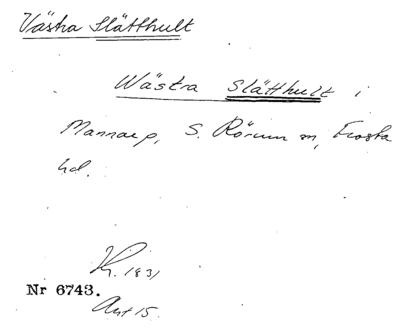 Västra Slätthult
Wästra Slätthult i
Mannarp, S. Rörum sn, Frosta
hd.
Kr. 1831
Nr 6743.
Avt 15.